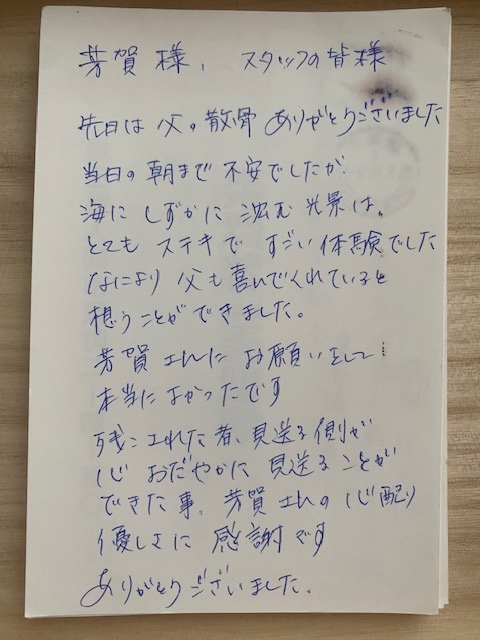 芳賀様、スタッフの皆様
先日は父の散骨ありがとうございました
当日の朝まで不安でしたが、
海にしずかに沈む光景は、
とてもステキですごい体験でした
なにより父も喜んでくれていると
想うことができました。
芳賀さんにお願いをして
本当によかったです
残こされた者、見送る側が
心おだやかに見送ることが
できた事、芳賀さんの心配り
優しさに感謝です
ありがとうございました。